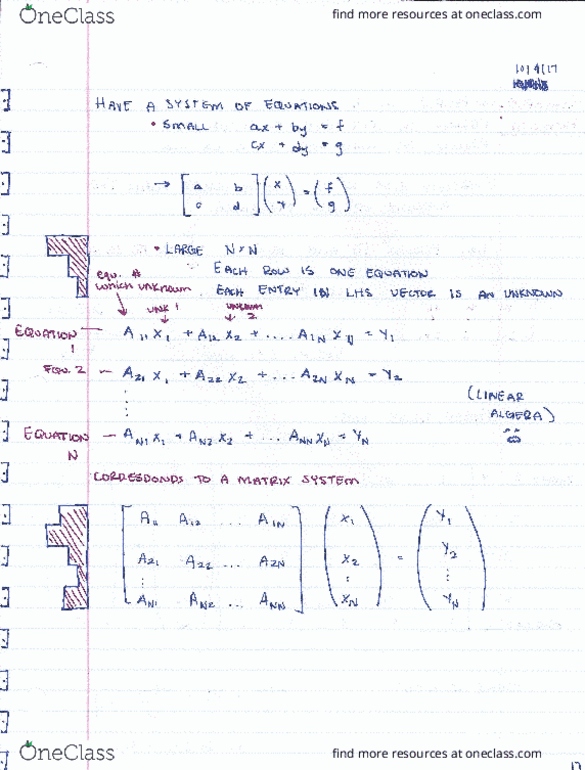 OneClass find more resources at oneclass.com
10/4/17
HAVE A SYSTEM OF EQUATIONS
• SMALL ax + by = f
cx + dy = g
→ [a b] (x) = (f)
[c d] (y) (g)
• LARGE N×N
EACH ROW IS ONE EQUATION
equ. #
which unknown EACH ENTRY IN LHS VECTOR IS AN UNKNOWN
UNK 1 UNKNOWN 2
EQUATION 1 — A₁₁X₁ + A₁₂X₂ + .... A₁NXN = Y₁
EQU. 2 — A₂₁X₁ + A₂₂X₂ + ... A₂NXN = Y₂
(LINEAR ALGEBRA)
EQUATION N — AN₁X₁ + AN₂X₂ + ... ANNXN = YN
CORRESPONDS TO A MATRIX SYSTEM
A₁₁ A₁₂ ... A₁N X₁ Y₁
A₂₁ A₂₂ ... A₂N X₂ = Y₂
⋮ ⋮ ⋮
AN₁ AN₂ ... ANN XN YN
OneClass find more resources at oneclass.com